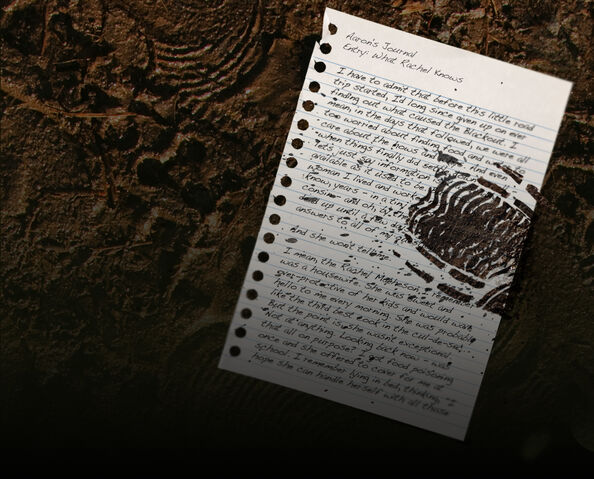 Aaron's Journal
Entry: What Rachel Knows
I have to admit that before this little road
trip started, I'd long since given up on ever
finding out what caused the Blackout. I
mean, in the days that followed, we were all
too worried about finding food and water to
care about the hows and
when things finally did
let's just say information
available as it used to be.
woman I lived and worked
know, years - in a tiny
up until
answers to all of my
And she won't tell me.
I mean, the Rachel Matheson I
was a housewife. She was sweet and
over-protective of her kids and would wave
hello to me every morning. She was probably
like the third best cook in the cul-de-sac.
But the point is, she wasn't exceptional.
Not at anything. Looking back now - was
that all on purpose? I got food poisoning
once and she offered to cover for me at
school. I remember lying in bed, thinking, "I
hope she can handle herself with all those